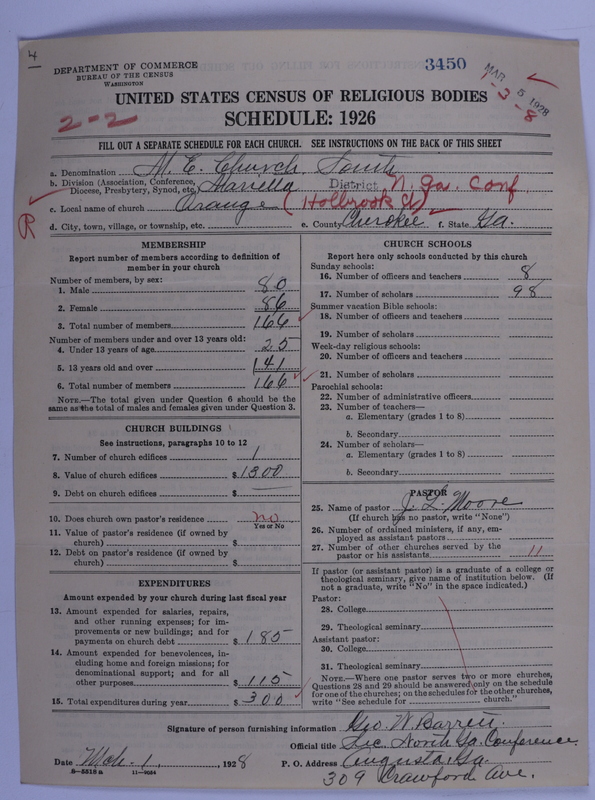 4
DEPARTMENT OF COMMERCE
BUREAU OF THE CENSUS
WASHINGTON
3450
MAR 5 1928
1-3-8
2-2
UNITED STATES CENSUS OF RELIGIOUS BODIES
SCHEDULE: 1926
FILL OUT A SEPARATE SCHEDULE FOR EACH CHURCH. SEE INSTRUCTIONS ON THE BACK OF THIS SHEET
a. Denomination M. E. Church, South
b. Division (Association, Conference, Diocese, Presbytery, Synod, etc.) Marietta District N. Ga. Conf
c. Local name of church Orange (Holbrook Ch)
R
d. City, town, village, or township, etc. e. County Cherokee f. State Ga.
MEMBERSHIP
Report number of members according to definition of
member in your church
Number of members, by sex:
1. Male 80
2. Female 86
3. Total number of members 166
Number of members under and over 13 years old:
4. Under 13 years of age 25
5. 13 years old and over 141
6. Total number of members 166
NOTE.—The total given under Question 6 should be the
same as the total of males and females given under Question 3.
CHURCH BUILDINGS
See instructions, paragraphs 10 to 12
7. Number of church edifices 1
8. Value of church edifices $ 1300
9. Debt on church edifices $
10. Does church own pastor's residence no
Yes or No
11. Value of pastor's residence (if owned by
church) $
12. Debt on pastor's residence (if owned by
church) $
EXPENDITURES
Amount expended by your church during last fiscal year
13. Amount expended for salaries, repairs,
and other running expenses; for im-
provements or new buildings; and for
payments on church debt $ 185
14. Amount expended for benevolences, in-
cluding home and foreign missions; for
denominational support; and for all
other purposes $ 115
15. Total expenditures during year $ 300
CHURCH SCHOOLS
Report here only schools conducted by this church
Sunday schools:
16. Number of officers and teachers 8
17. Number of scholars 98
Summer vacation Bible schools:
18. Number of officers and teachers
19. Number of scholars
Week-day religious schools:
20. Number of officers and teachers
21. Number of scholars
Parochial schools:
22. Number of administrative officers
23. Number of teachers—
a. Elementary (grades 1 to 8)
b. Secondary
24. Number of scholars—
a. Elementary (grades 1 to 8)
b. Secondary
PASTOR
25. Name of pastor J. L. Moore
(If church has no pastor, write "None")
26. Number of ordained ministers, if any, em-
ployed as assistant pastors
27. Number of other churches served by the
pastor or his assistants 11
If pastor (or assistant pastor) is a graduate of a college or
theological seminary, give name of institution below. (If
not a graduate, write "No" in the space indicated.)
Pastor:
28. College
29. Theological seminary
Assistant pastor:
30. College
31. Theological seminary
NOTE.—Where one pastor serves two or more churches,
Questions 28 and 29 should be answered only on the schedule
for one of the churches; on the schedules for the other churches,
write "See schedule for church."
Signature of person furnishing information Geo. W. Barrett.
Official title Sec. North Ga. Conference
Date Mch. 1, 1928 P. O. Address Augusta, Ga.
8-5518 a 11-9034
309 Crawford Ave.